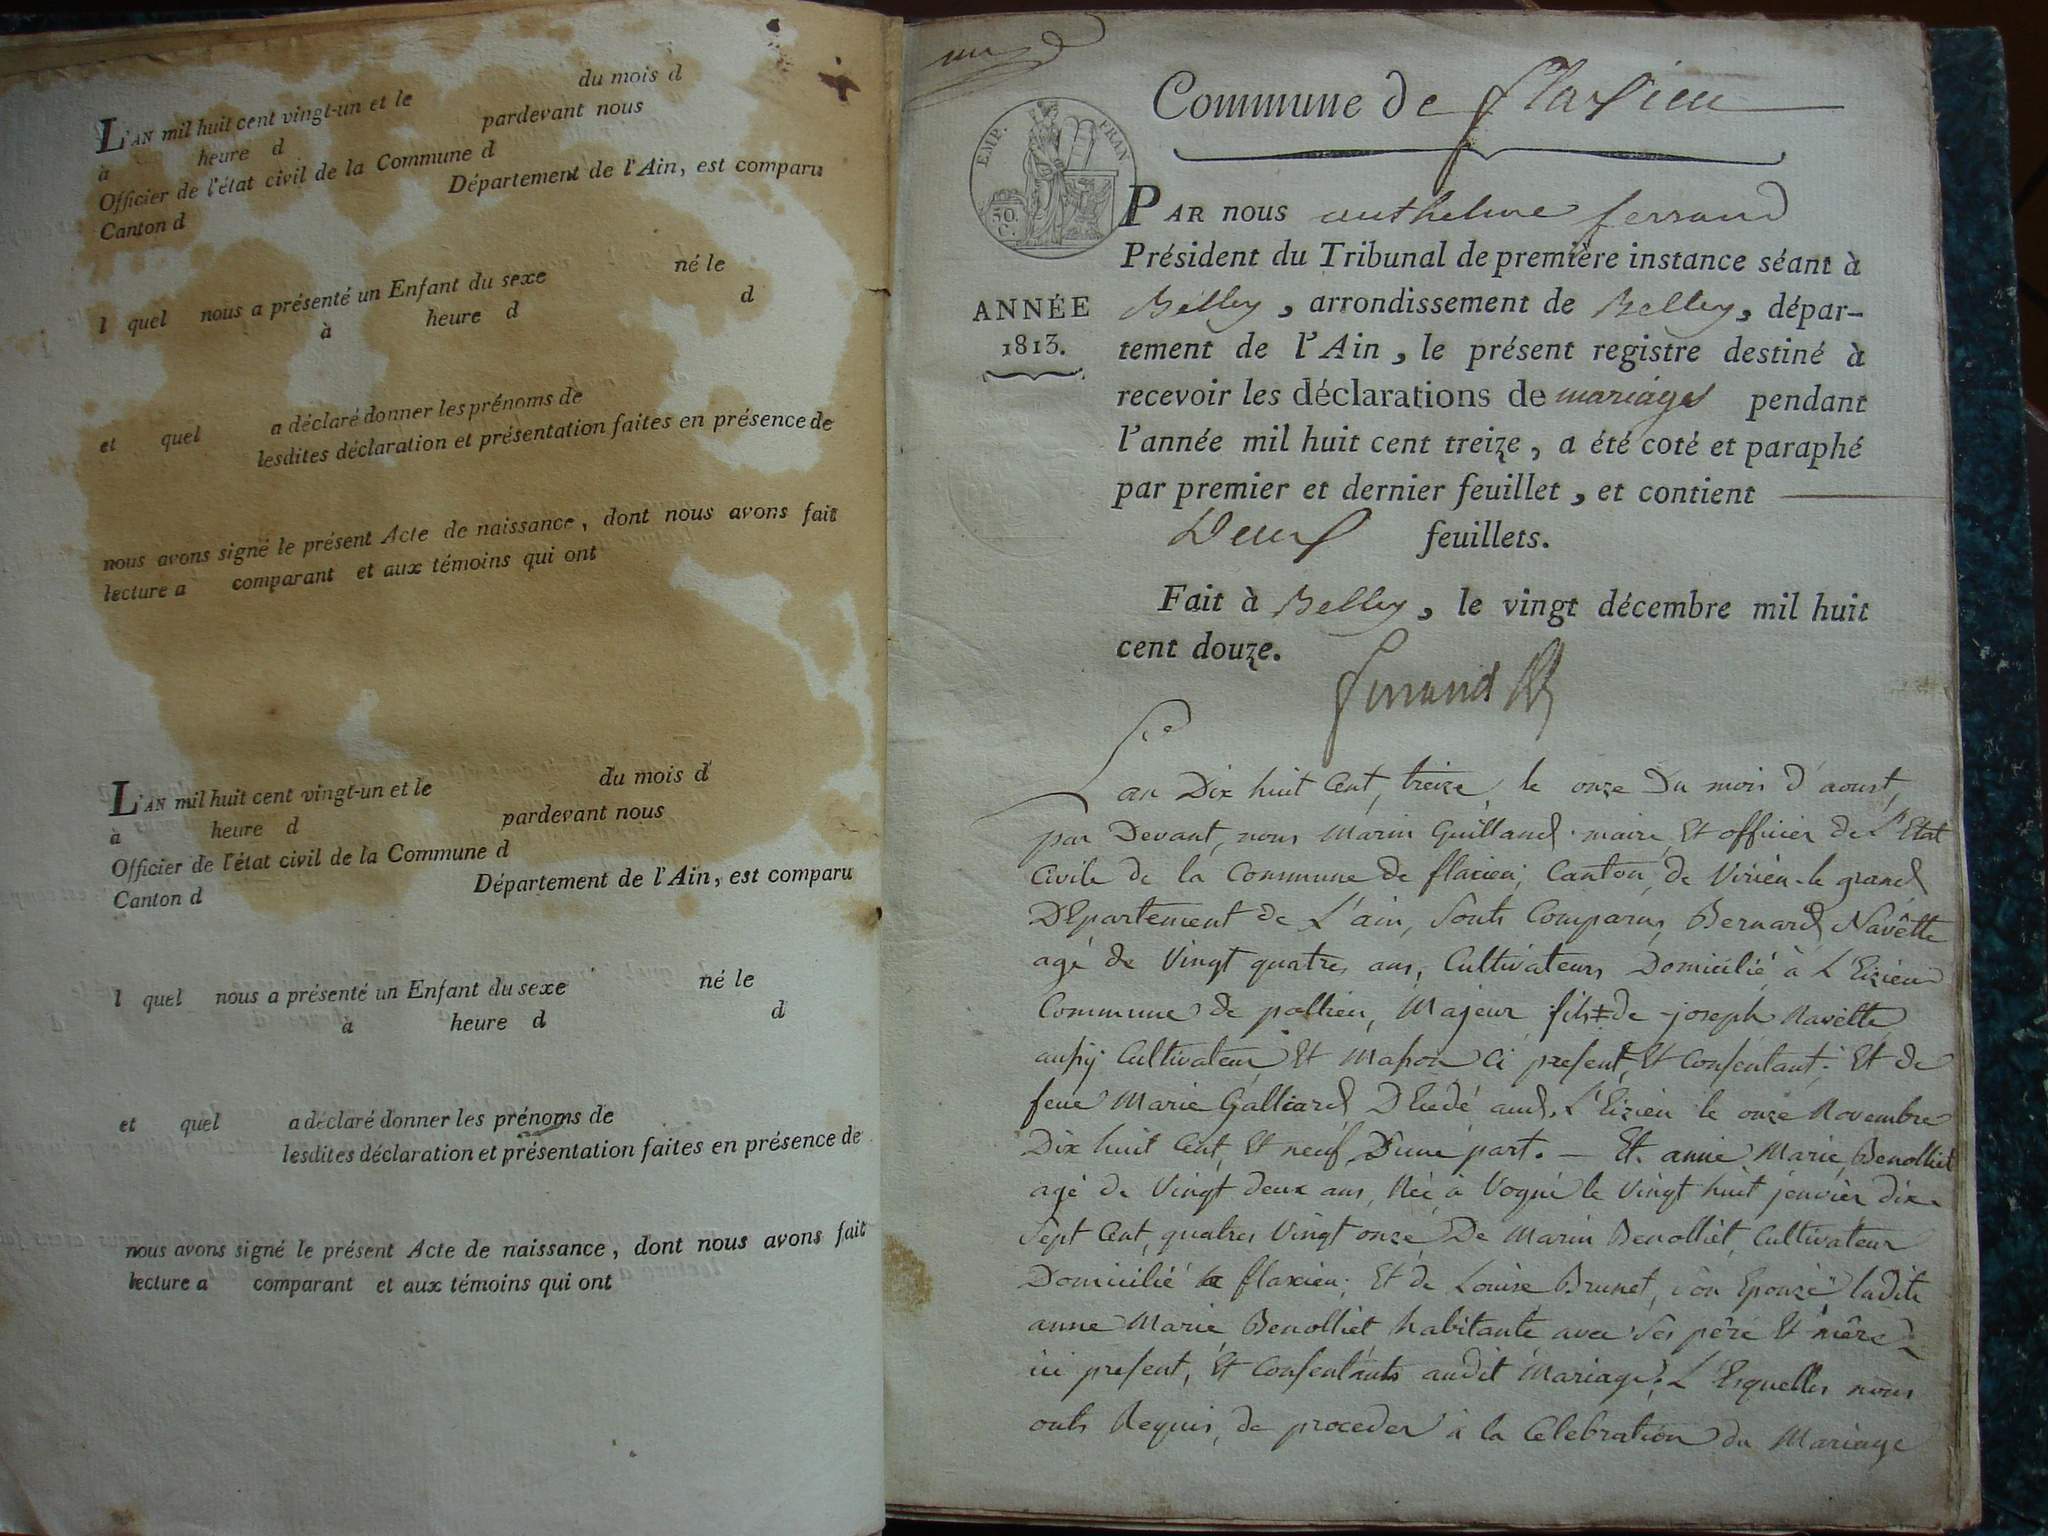 L'AN mil huit cent vingt-un et le du mois d
à heure d pardevant nous
Officier de l'état civil de la Commune d
Canton d Département de l'Ain, est comparu
l quel nous a présenté un Enfant du sexe né le
à heure d d
et quel a déclaré donner les prénoms de
lesdites déclaration et présentation faites en présence de
nous avons signé le présent Acte de naissance, dont nous avons fait
lecture a comparant et aux témoins qui ont
L'AN mil huit cent vingt-un et le du mois d
à heure d pardevant nous
Officier de l'état civil de la Commune d
Canton d Département de l'Ain, est comparu
l quel nous a présenté un Enfant du sexe né le
à heure d d
et quel a déclaré donner les prénoms de
lesdites déclaration et présentation faites en présence de
nous avons signé le présent Acte de naissance, dont nous avons fait
lecture a comparant et aux témoins qui ont
Commune de flaxieu
EMP. FRAN
50.
C.
ANNÉE
1813.
PAR nous anthelme ferrand
Président du Tribunal de première instance séant à
Belley, arrondissement de Belley, dépar-
tement de l'Ain, le présent registre destiné à
recevoir les déclarations de mariages pendant
l'année mil huit cent treize, a été coté et paraphé
par premier et dernier feuillet, et contient
Deux feuillets.
Fait à Belley, le vingt décembre mil huit
cent douze.
ferrand
L'an Dix huit Cent, treize, le onze Du mois d'aoust,
par Devant, nous Marin Guilland maire, Et officier de L'Etat
Civile de la Commune de flaxieu, Canton, de Virieu-le grand
DEpartement de L'ain, Sonts Comparus, Bernard Navette
agé de Vingt quatres ans, Cultivateurs Domicilié à L'Eizieu
Commune de pollieu, Majeur fils de joseph Navette
aussy Cultivateur Et Masson Ci present, Et Consentant; Et de
feue Marie Galliard DEcedé aud. L'Eizieu le onze Novembre
Dix huit Cent, Et neuf, D'une part. — Et anne Marie Benolliet
agé de Vingt deux ans, Née à Vogni le Vingt huit jenvier dix-
Sept Cent, quatres Vingt onze De Marin Benolliet, Cultivateur
Domicilié a flaxieu; Et de Louise Brunet, son Epouze ladite
anne Marie Benolliet habitante avec Ses père Et mère
ici present, Et Consentants audit Mariage, L'Esquelles nous
onts Requis, de proceder à la Celebration du Mariage